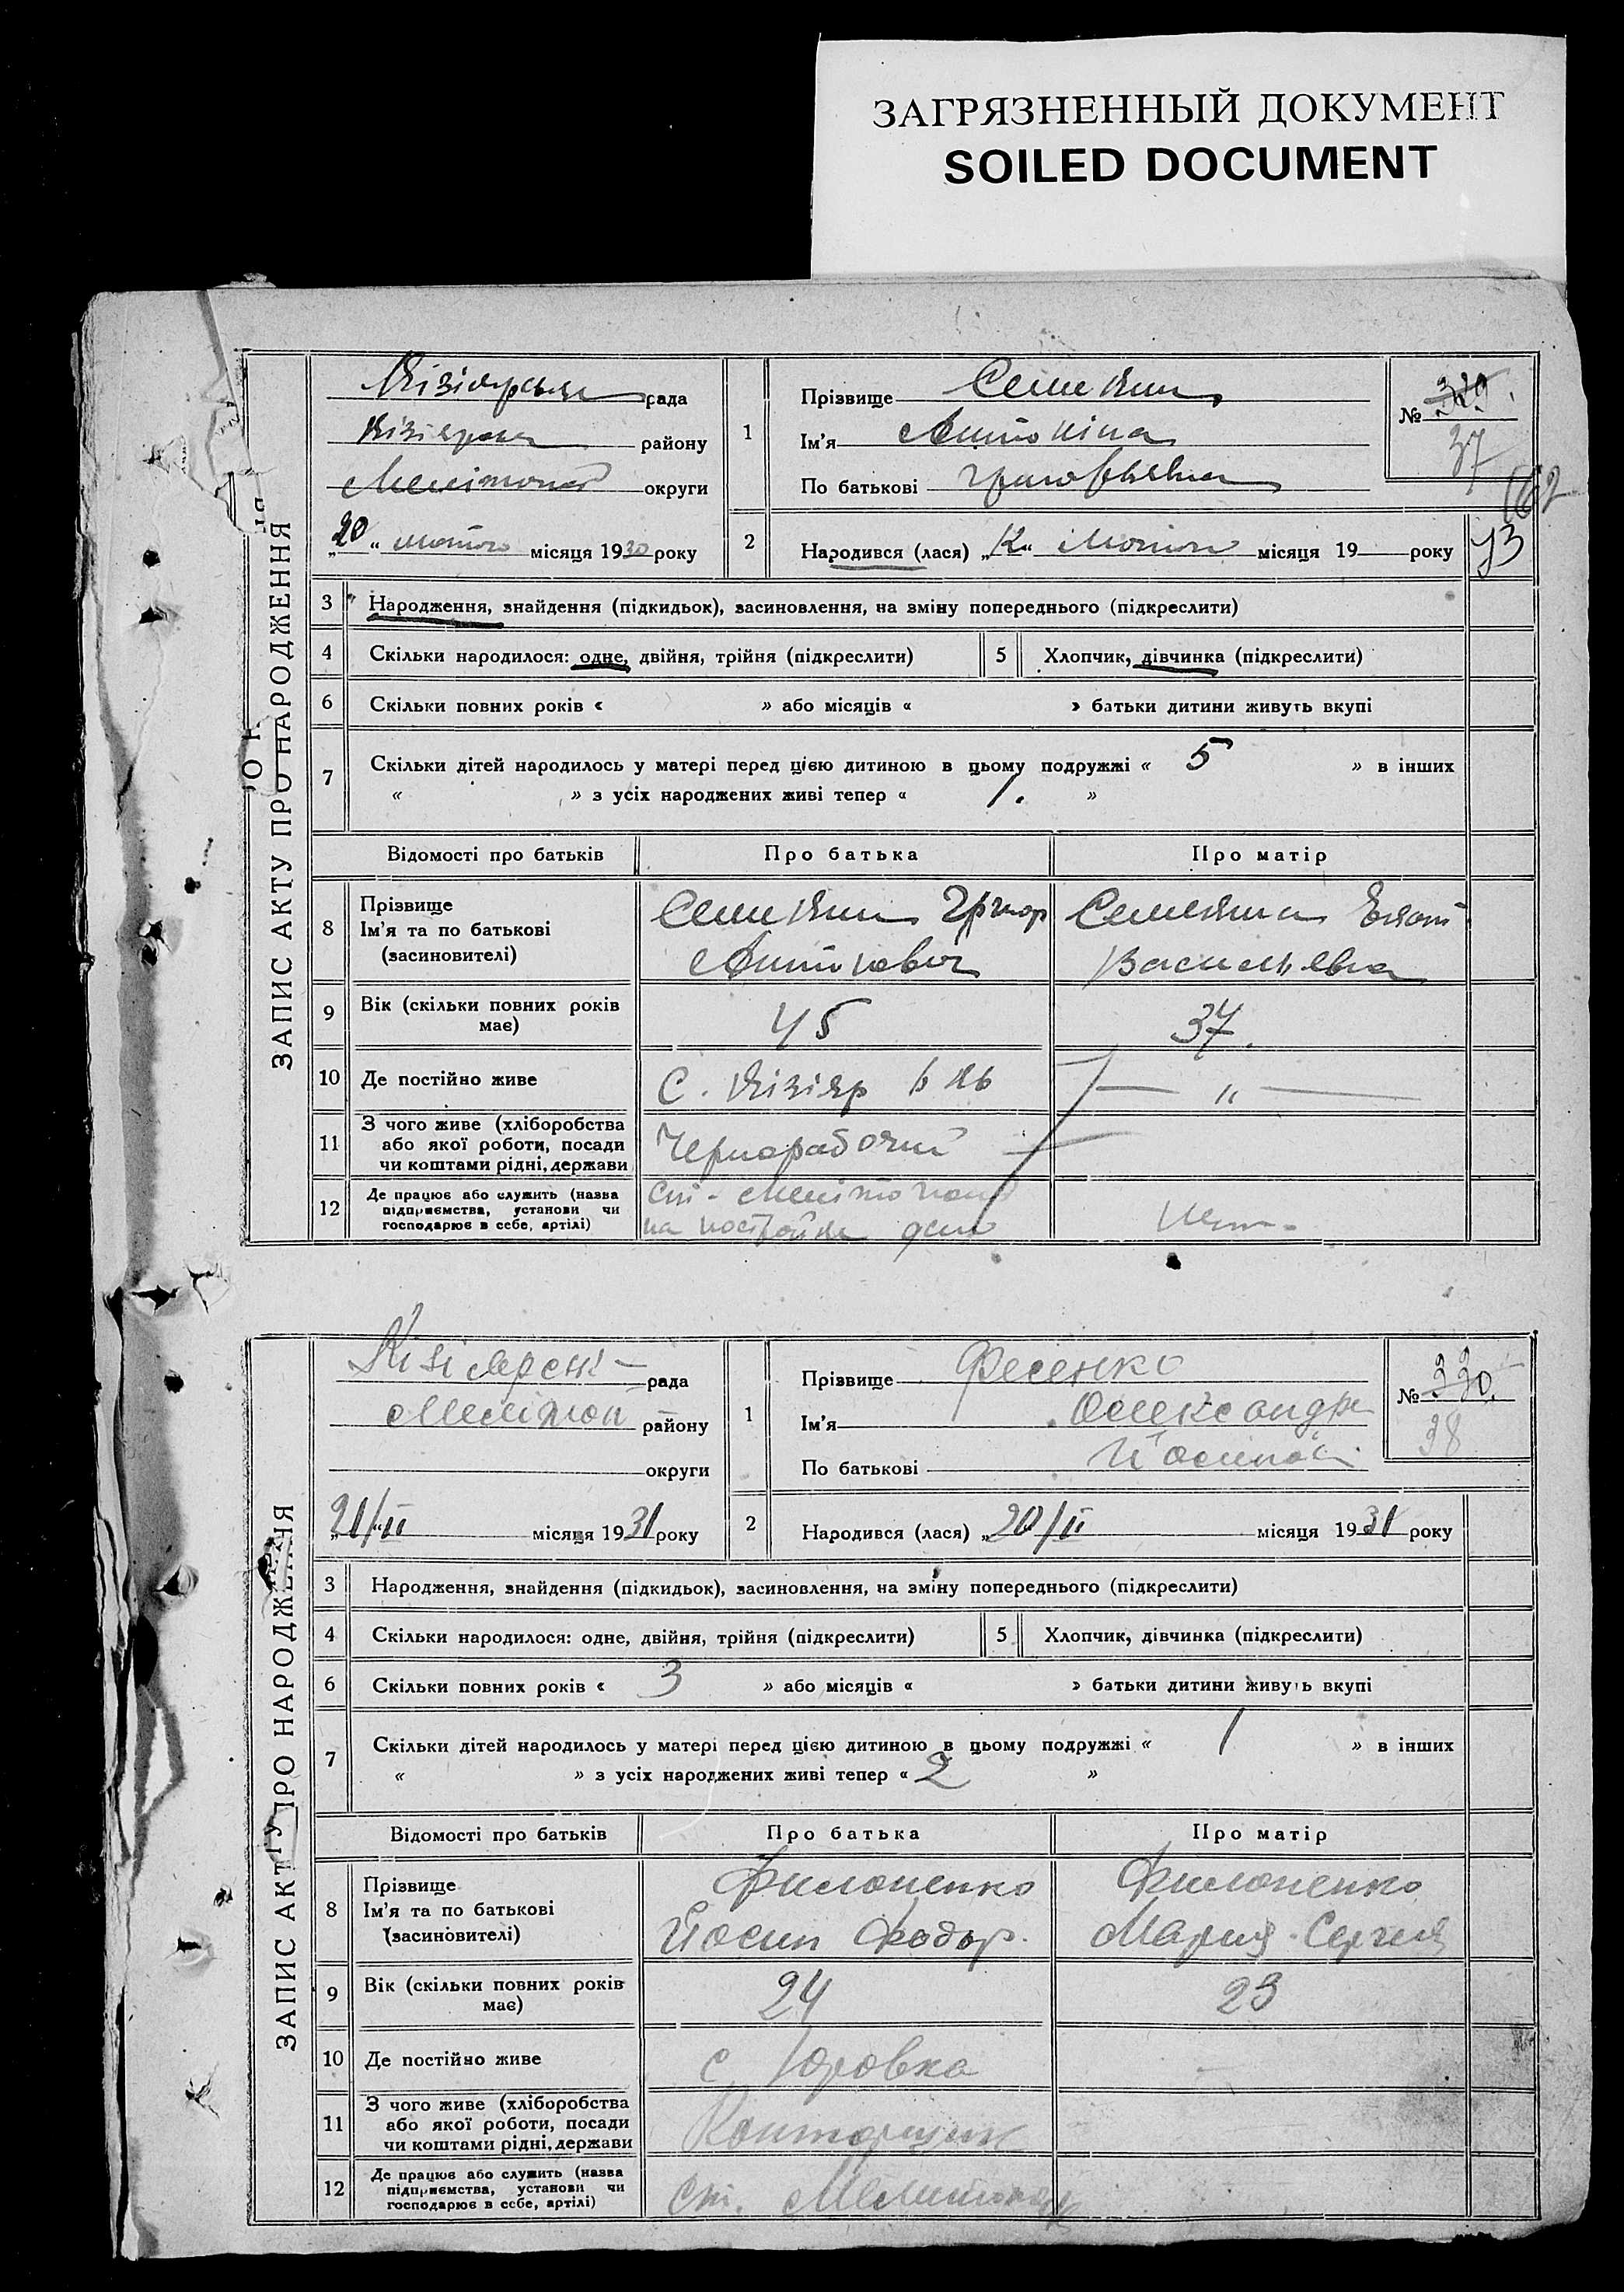 ЗАГРЯЗНЕННЫЙ ДОКУМЕНТ
SOILED DOCUMENT
ЗАПИС АКТУ ПРО НАРОДЖЕННЯ
Кізіярська рада
району
Мелітопол округи
„20“ лютого місяця 1930 року
1
Прізвище Семекин
Ім'я Антоніна
По батькові Григорьевна
№ 329.
37
162
2 Народився (лася) „12“ Лютого місяця 19 року
3 Народження, знайдення (підкидьок), засиновлення, на зміну попереднього (підкреслити)
4 Скільки народилося: одне, двійня, трійня (підкреслити) 5 Хлопчик, дівчинка (підкреслити)
6 Скільки повних років « » або місяців « » батьки дитини живуть вкупі
7 Скільки дітей народилось у матері перед цією дитиною в цьому подружжі « 5 » в інших
« » з усіх народжених живі тепер « 1. »
Відомості про батьків Про батька Про матір
8 Прізвище
Ім'я та по батькові
(засновителі)
Семекин Григор
Антонович
Семекина
Васильевна
9 Вік (скільки повних років має) 45 37.
10 Де постійно живе С. Кізіяр — „ —
11 З чого живе (хліборобства
або якої роботи, посади
чи коштами рідні, держави Чернорабочий
12 Де працює або служить (назва
підприємства, установи чи
господарює в себе, артілі)
Ст. Мелітополь
на постройке депо
Нет.
ЗАПИС АКТУ ПРО НАРОДЖЕННЯ
Кізіярськ рада
Мелітоп району
округи
„21/II місяця 1931 року
1
Прізвище Фесенко
Ім'я Олександр
По батькові Йосипов
№ 330.
38
2 Народився (лася) „20/II місяця 1931 року
3 Народження, знайдення (підкидьок), засиновлення, на зміну попереднього (підкреслити)
4 Скільки народилося: одне, двійня, трійня (підкреслити) 5 Хлопчик, дівчинка (підкреслити)
6 Скільки повних років « 3 » або місяців « » батьки дитини живуть вкупі
7 Скільки дітей народилось у матері перед цією дитиною в цьому подружжі « 1 » в інших
« » з усіх народжених живі тепер « 2 »
Відомості про батьків Про батька Про матір
8 Прізвище
Ім'я та по батькові
(засиновителі)
Филоненко
Йосип Федор.
Филоненко
Мария Сергия
9 Вік (скільки повних років має) 24 23
10 Де постійно живе с. Юровка
11 З чого живе (хліборобства
або якої роботи, посади
чи коштами рідні, держави Конторщик
12 Де працює або служить (назва
підприємства, установи чи
господарює в себе, артілі)
Ст. Мелитополь